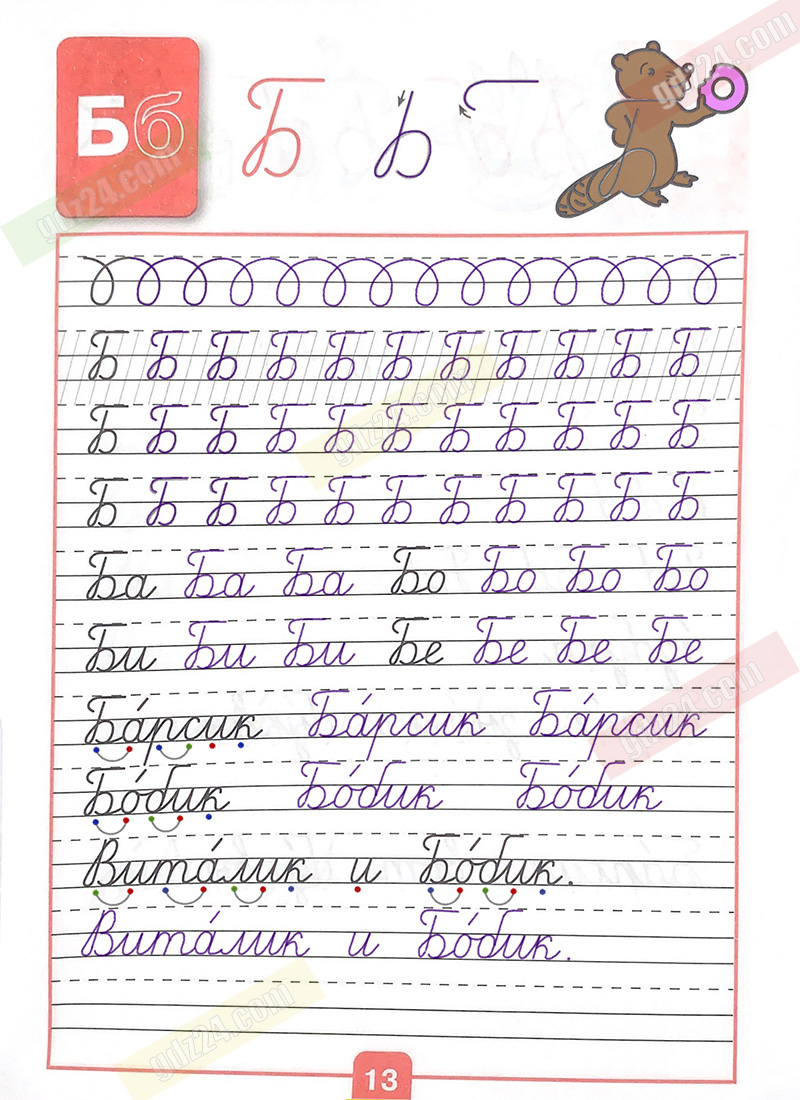 Бб Б
gdz24.com
gdz24.com
Б Б Б Б Б Б Б Б Б Б Б
Б Б Б Б Б Б Б Б Б Б Б
gdz24.com
Б Б Б Б Б Б Б Б Б Б Б
Ба Ба Ба Бо Бо Бо Бо
Би Би Би Бе Бе Бе Бе
Ба́рсик Ба́рсик Ба́рсик
gdz24.com
Бо́бик Бо́бик Бо́бик
Вита́лик и Бо́бик.
Вита́лик и Бо́бик.
gdz24.com
13